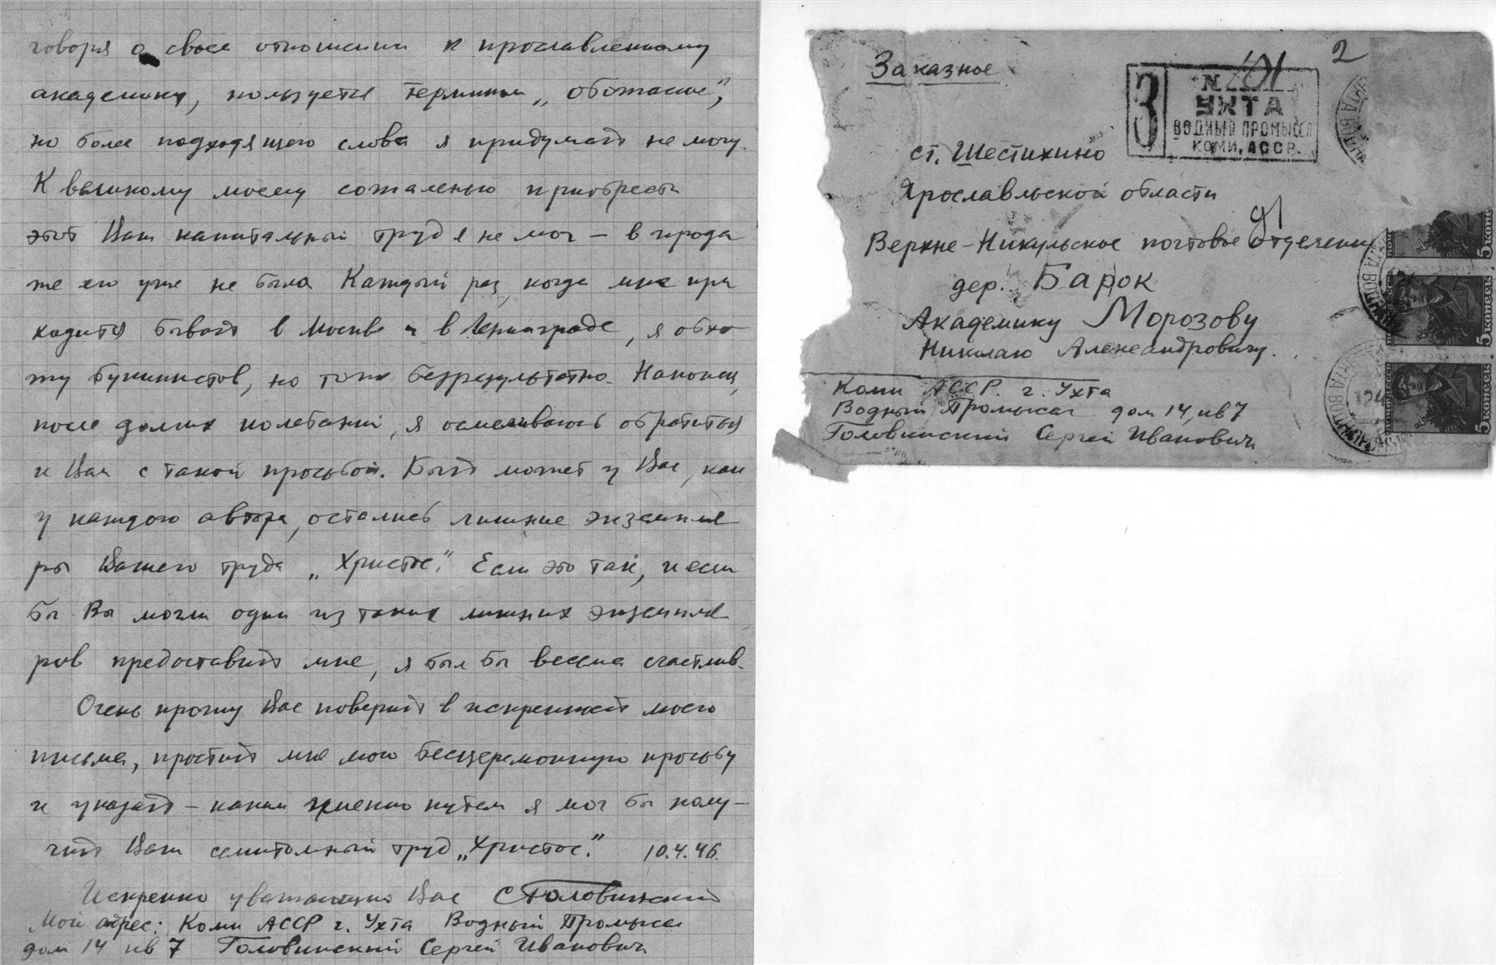 говоря о своем отношении к прославленному
академику, пользуется термином „обожание”,
но более подходящего слова я придумать не могу.
К великому моему сожаленью приобрести
этот Ваш капитальный труд я не мог – в продаже
же его уже не было. Каждый раз, когда мне при
ходится бывать в Москве и в Ленинграде, я обхо
жу букинистов, но тоже безрезультатно. Наконец,
после долгих колебаний, я осмеливаюсь обратиться
к Вам с такой просьбой. Быть может у Вас, как
у каждого автора, остались лишние экземпля
ры Вашего труда „Христос”. Если это так, и если
бы Вы могли один из таких лишних экземпля
ров предоставить мне, я был бы весьма счастлив.
Очень прошу Вас поверить в искренность моего
письма, простить мне мою бесцеремонную просьбу
и указать – каким именно путем я мог бы полу–
чить Ваш семитомный труд „Христос”. 10.4.46.
Искренно уважающий Вас СГоловинский
Мой адрес: Коми АССР г. Ухта Водный Промысел
дом 14 кв 7 Головинский Сергей Иванович
2
Заказное
З
N 201
УХТА
ВОДНЫЙ ПРОМЫСЕЛ
КОМИ, АССР.
ст. Шестихино
Ярославльской области
Верхне-Никульское почтовое отделение
дер. Борок
Академику Морозову
Николаю Александровичу.
Коми АССР. г. Ухта
Водный Промысел дом 14, кв 7
Головинский Сергей Иванович
5 копеек
5 копеек
5 копеек